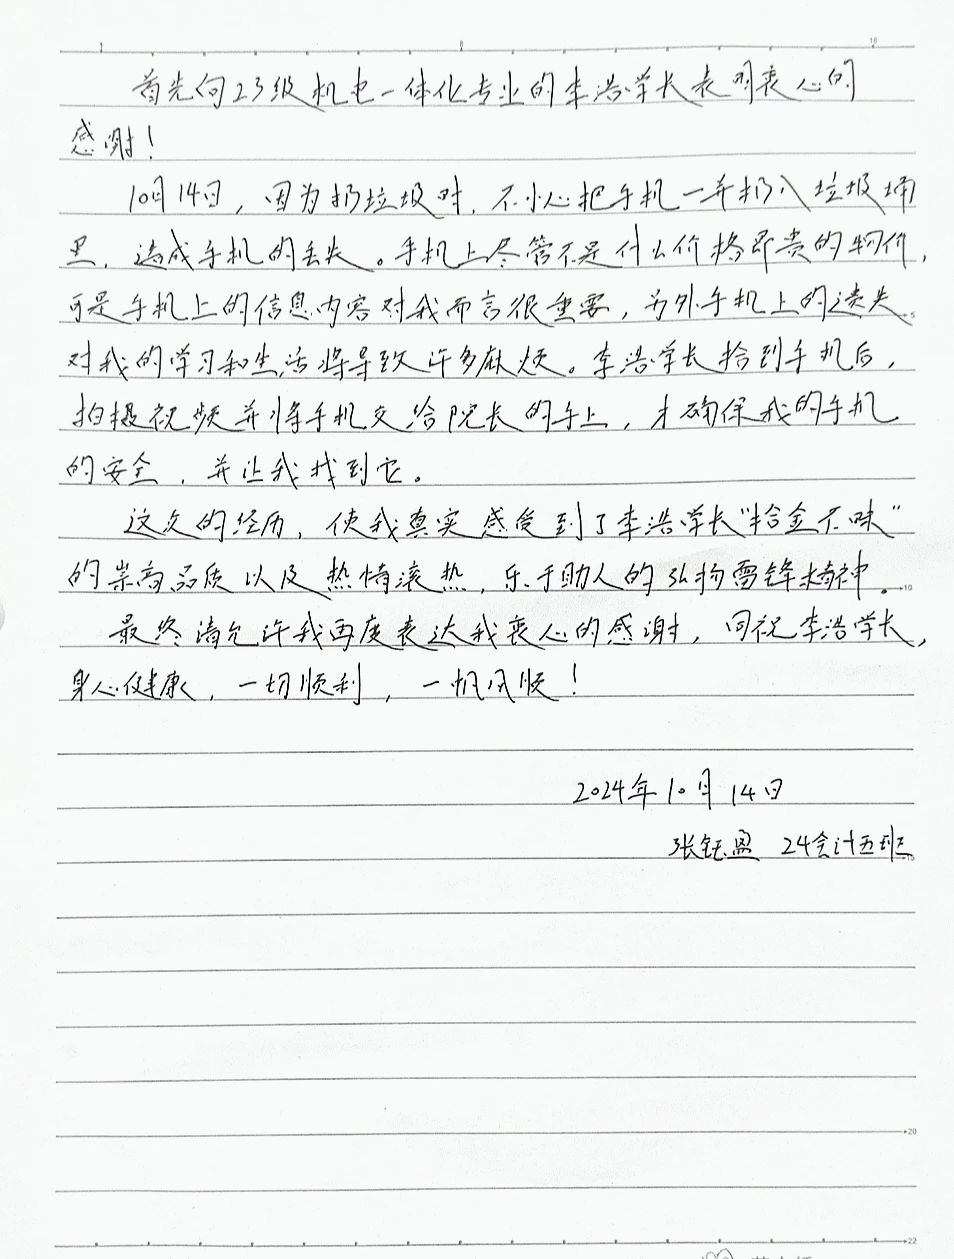 首先向23级机电一体化专业的李浩学长表明衷心的
感谢！
10月14日，因为扔垃圾时，不小心把手机一并扔入垃圾桶
里，造成手机的丢失。手机上尽管不是什么价格即贵的物价，
可是手机上的信息内容对我而言很重要，另外手机上的遗失
对我的学习和生活将导致许多麻烦。李浩学长拾到手机后，
拍摄视频并将手机交给院长的手上，才确保我的手机
的安全，并让我找到它。
这次的经历，使我真实感受到了李浩学长“拾金不昧”
的崇高品质以及热情滚热，乐于助人的弘扬雷锋精神。
最终请允许我再度表达我衷心的感谢，同祝李浩学长，
身心健康，一切顺利，一帆风顺！
2024年10月14日
张钰盈 24会计五班